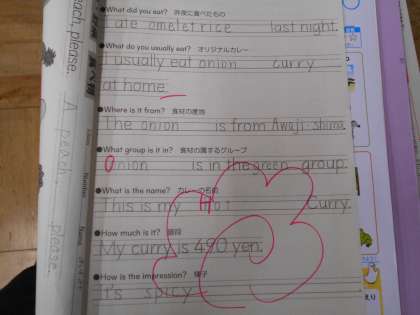 ●What did you eat? 昨夜に食べたもの
I ate omelet rice last night.
●What do you usually eat? オリジナルカレー
I usually eat onion curry
at home.
●Where is it from? 食材の産地
The onion is from Awaji shima.
●What group is it in? 食材の属するグループ
Onion is in the green group.
●What is the name? カレーの名前
This is my Hot Curry.
●How much is it? 値段
My curry is 490 yen.
●How is the impression? 様子
It's spicy
each, please.
A peach, please.